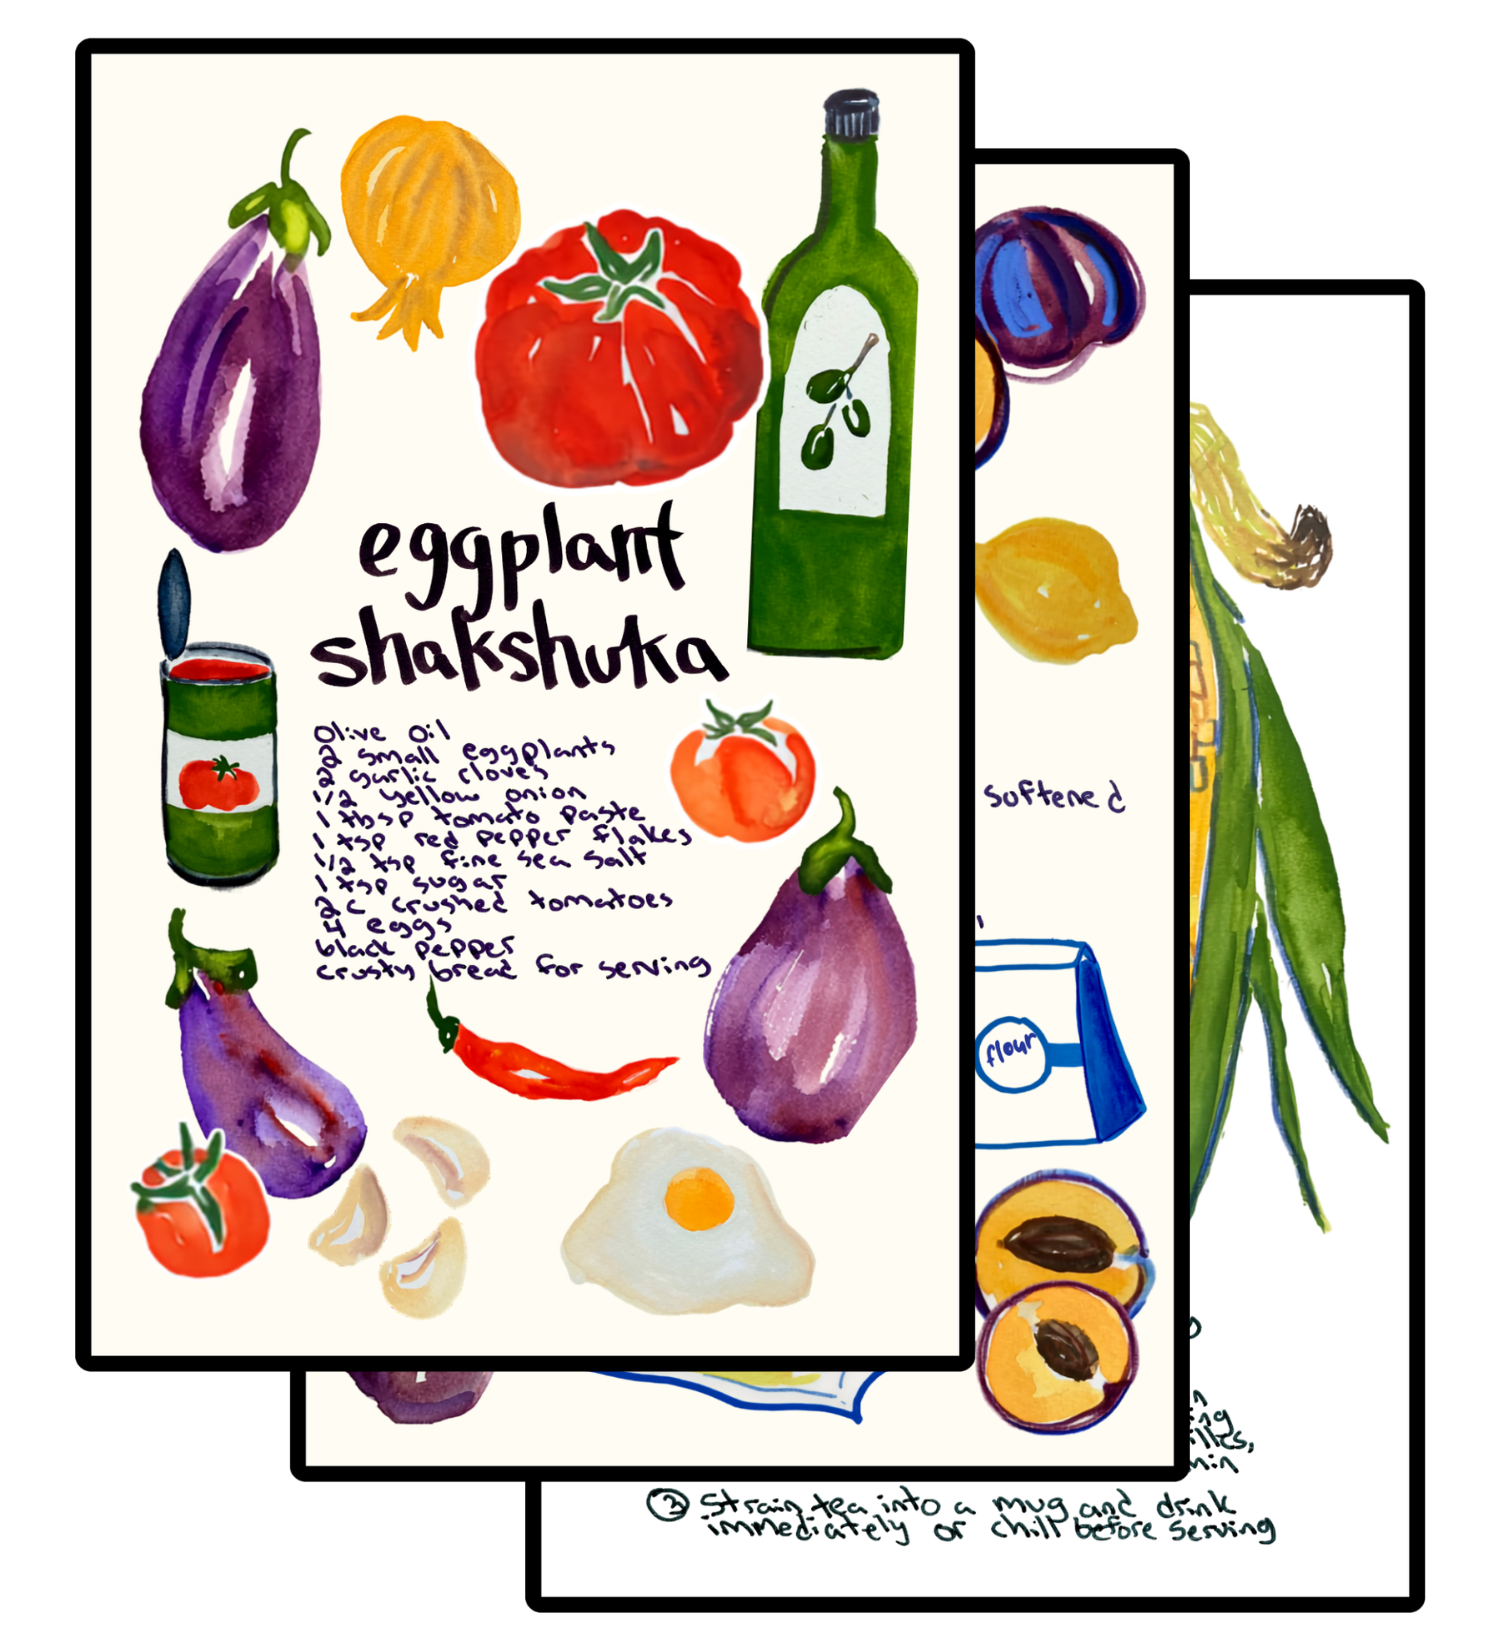 eggplant
shakshuka
Olive oil
2 small eggplants
2 garlic cloves
1/2 yellow onion
1 tbsp tomato paste
1 tsp red pepper flakes
1/2 tsp fine sea salt
1 tsp sugar
2c crushed tomatoes
4 eggs
black pepper
crusty bread for serving
softened
flour
③ Strain tea into a mug and drink
immediately or chill before serving